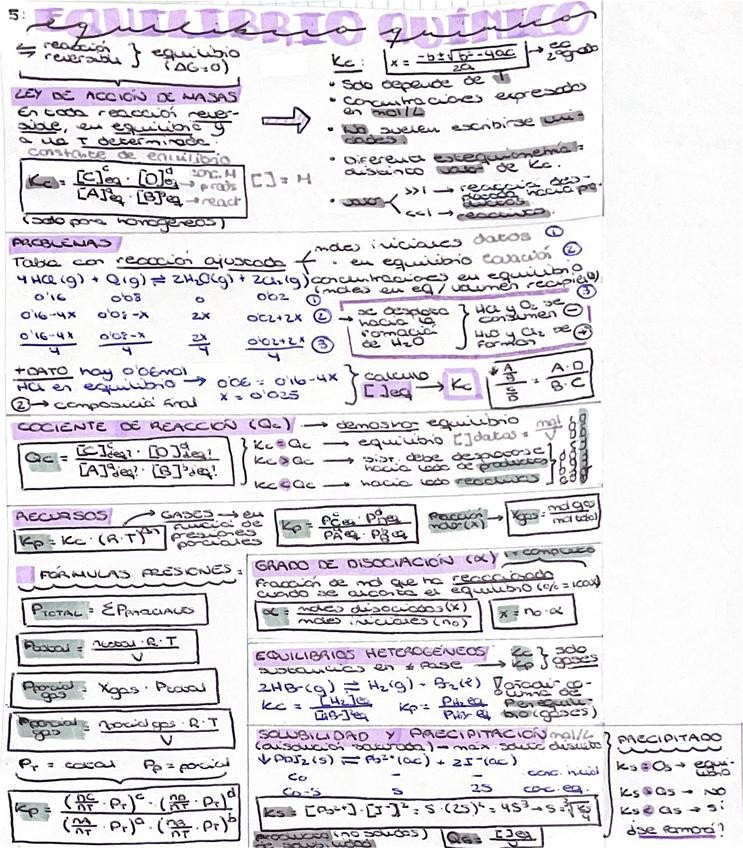 5:
EQUILIBRIO QUÍMICO
equilibrio químico
⇋ reacción reversible } equilibrio (ΔG=0)
LEY DE ACCIÓN DE MASAS
En toda reacción rever-
sible, en equilibrio y
a una T determinada:
constante de equilibrio
Kc = [C]ᶜeq · [D]ᵈeq / [A]ᵃeq · [B]ᵇeq → conc. M → prods → react
[ ] = M
(solo para homogéneos)
Kc: x = -b±√b²-4ac / 2a → ec 2º grado
• Solo depende de T
• Concentraciones expresadas
en mol/L
• No suelen escribirse uni-
dades.
• Diferente estequiometría =
distinto valor de Kc.
• valor < >>1 → reacción des-
plazada hacia pro-
ductos.
<<1 → reactivos.
PROBLEMAS
Tabla con reacción ajustada
moles iniciales datos ①
" en equilibrio ecuación ②
concentraciones en equilibrio
(moles en eq/volumen recipiente) ③
4HCl(g) + O₂(g) ⇌ 2H₂O(g) + 2Cl₂(g)
0'16 0'08 0 0'02 ①
0'16-4x 0'08-x 2x 0'02+2x ②
0'16-4x/4 0'08-x/4 2x/4 0'02+2x/4 ③
se desplaza
hacia la
formación
de H₂O
HCl y O₂ se
consumen ⊖
H₂O y Cl₂ se
forman ⊕
+DATO hay 0'06mol
HCl en equilibrio → 0'06 = 0'16-4x
x = 0'025
② → composición final
cálculo
[ ]eq → Kc
A/B / C/D = A·D / B·C
COCIENTE DE REACCIÓN (Qc) → demostrar equilibrio
Qc = [C]ᶜdeq? · [D]ᵈdeq? / [A]ᵃdeq? · [B]ᵇdeq?
Kc = Qc → equilibrio [ ]datos = mol/V
Kc > Qc → sist. debe desplazarse
hacia lado de productos
Kc < Qc → hacia lado reactivos
RECURSOS
Kp = Kc · (R·T)^Δn
GASES → en
función de
presiones
parciales
Kp = Pᶜceq · Pᵈdeq / Pᵃaeq · Pᵇbeq
Fracción
molar (x) → Xgas = mol gas / mol total
FÓRMULAS PRESIONES:
PTOTAL = ΣPparciales
Ptotal = ntotal · R · T / V
Pparcial gas = Xgas · Ptotal
Pparcial gas = nparcial gas · R · T / V
PT = total Pp = parcial
Kp = (nC/nT · PT)ᶜ · (nD/nT · PT)ᵈ / (nA/nT · PT)ᵃ · (nB/nT · PT)ᵇ
GRADO DE DISOCIACIÓN (α) 1 = completa
Fracción de mol que ha reaccionado
cuando se alcanza el equilibrio (% = 100α)
α = moles disociados (x) / moles iniciales (no)
x = no · α
EQUILIBRIOS HETEROGÉNEOS
sustancias en ≠ fase → Kc Kp } solo gases
2HBr(g) ⇌ H₂(g) + Br₂(l)
Kc = [H₂]eq / [HBr]²eq Kp = PH₂eq / P²HBr eq
Añadir co-
lumna de
P en equili-
brio (gases)
SOLUBILIDAD Y PRECIPITACIÓN mol/L
(disolución saturada) → máx. soluto disuelto
↓PbI₂(s) ⇌ Pb²⁺(ac) + 2I⁻(ac)
Co - - conc. inicial
Co-s s 2s conc. eq.
Ks = [Pb²⁺] · [I⁻]² = s · (2s)² = 4s³ → s = ∛Ks/4
producto (no sólidos)
de solubilidad
Qs = [ ]eq
PRECIPITADO
Ks = Qs → equi-
librio
Ks > Qs → NO
Ks < Qs → sí
¿se formará?